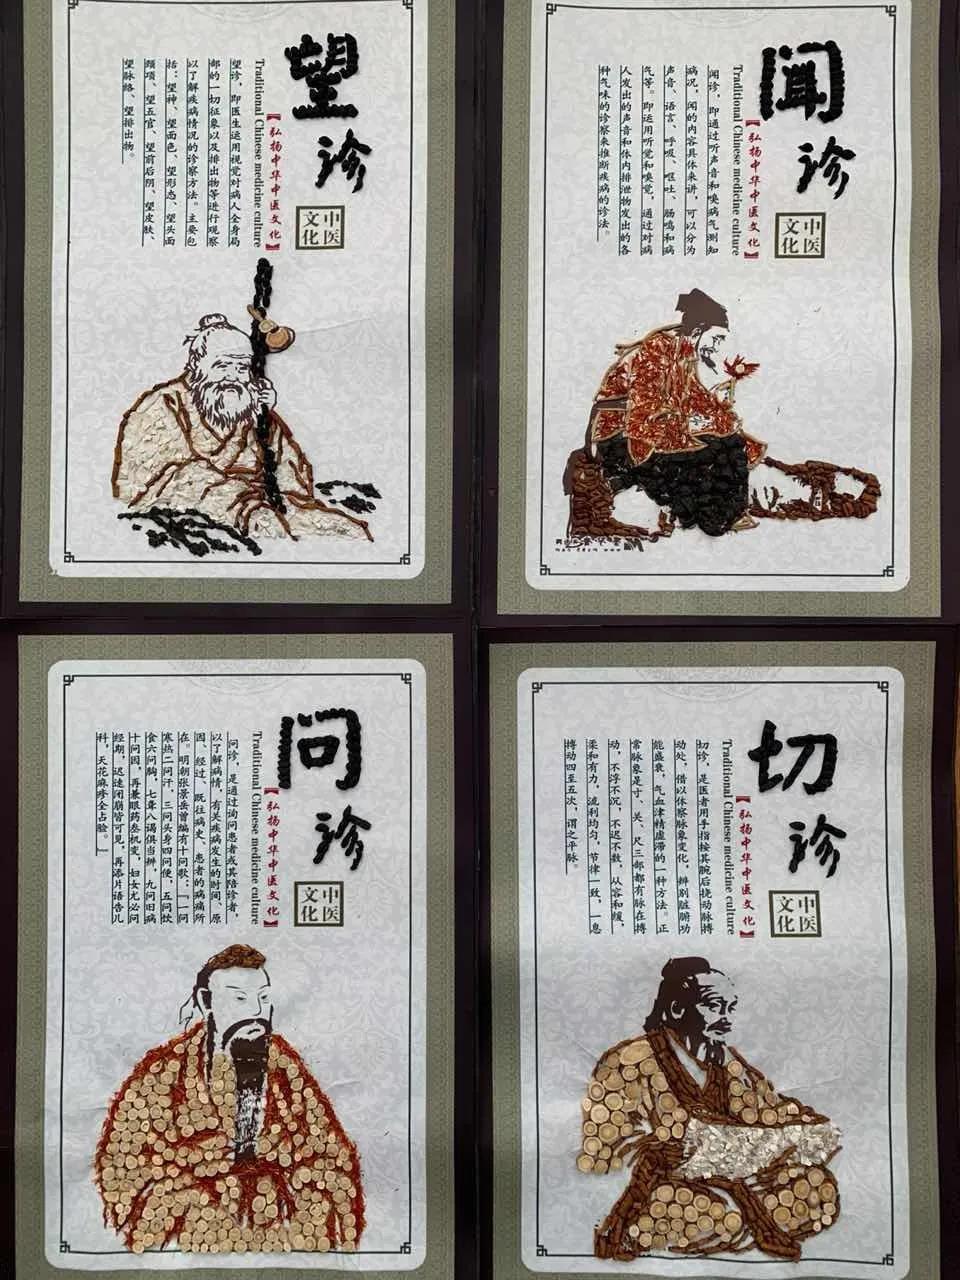 望诊
中医
文化
【弘扬中华中医文化】
Traditional Chinese medicine culture
望诊，即医生运用视觉对病人全身局
部的一切征象以及排出物等进行观察
以了解疾病情况的诊察方法。主要包
括：望神、望面色、望形态、望头面
颈项、望五官、望前后阴、望皮肤、
望脉络、望排出物。
闻诊
中医
文化
【弘扬中华中医文化】
Traditional Chinese medicine culture
闻诊，即通过听声音和嗅病气测知
病况，闻的内容具体来讲，可以分为
声音、语言、呼吸、呕吐、肠鸣和病
气等。即运用听觉和嗅觉，通过对病
人发出的声音和体内排泄物发出的各
种气味的诊察来推断疾病的诊法。
问诊
中医
文化
【弘扬中华中医文化】
Traditional Chinese medicine culture
问诊，是通过询问患者或其陪诊者，
以了解病情，有关疾病发生的时间、原
因、经过、既往病史、患者的病痛所
在。明朝张景岳曾编有十问歌："一问
寒热二问汗，三问头身四问便，五问饮
食六问胸，七聋八渴俱当辨，九问旧病
十问因，再兼服药参机变，妇女尤必问
经期，迟速闭崩皆可见，再添片语告儿
科，天花麻疹全占验。"
切诊
中医
文化
【弘扬中华中医文化】
Traditional Chinese medicine culture
切诊，是医者用手指按其腕后挠动脉搏
动处，借以体察脉象变化，辨别脏腑功
能盛衰，气血津精虚滞的一种方法。正
常脉象是寸、关、尺三部都有脉在搏
动，不浮不沉，不迟不数，从容和缓，
柔和有力，流利均匀，节律一致，一息
搏动四至五次，谓之平脉。